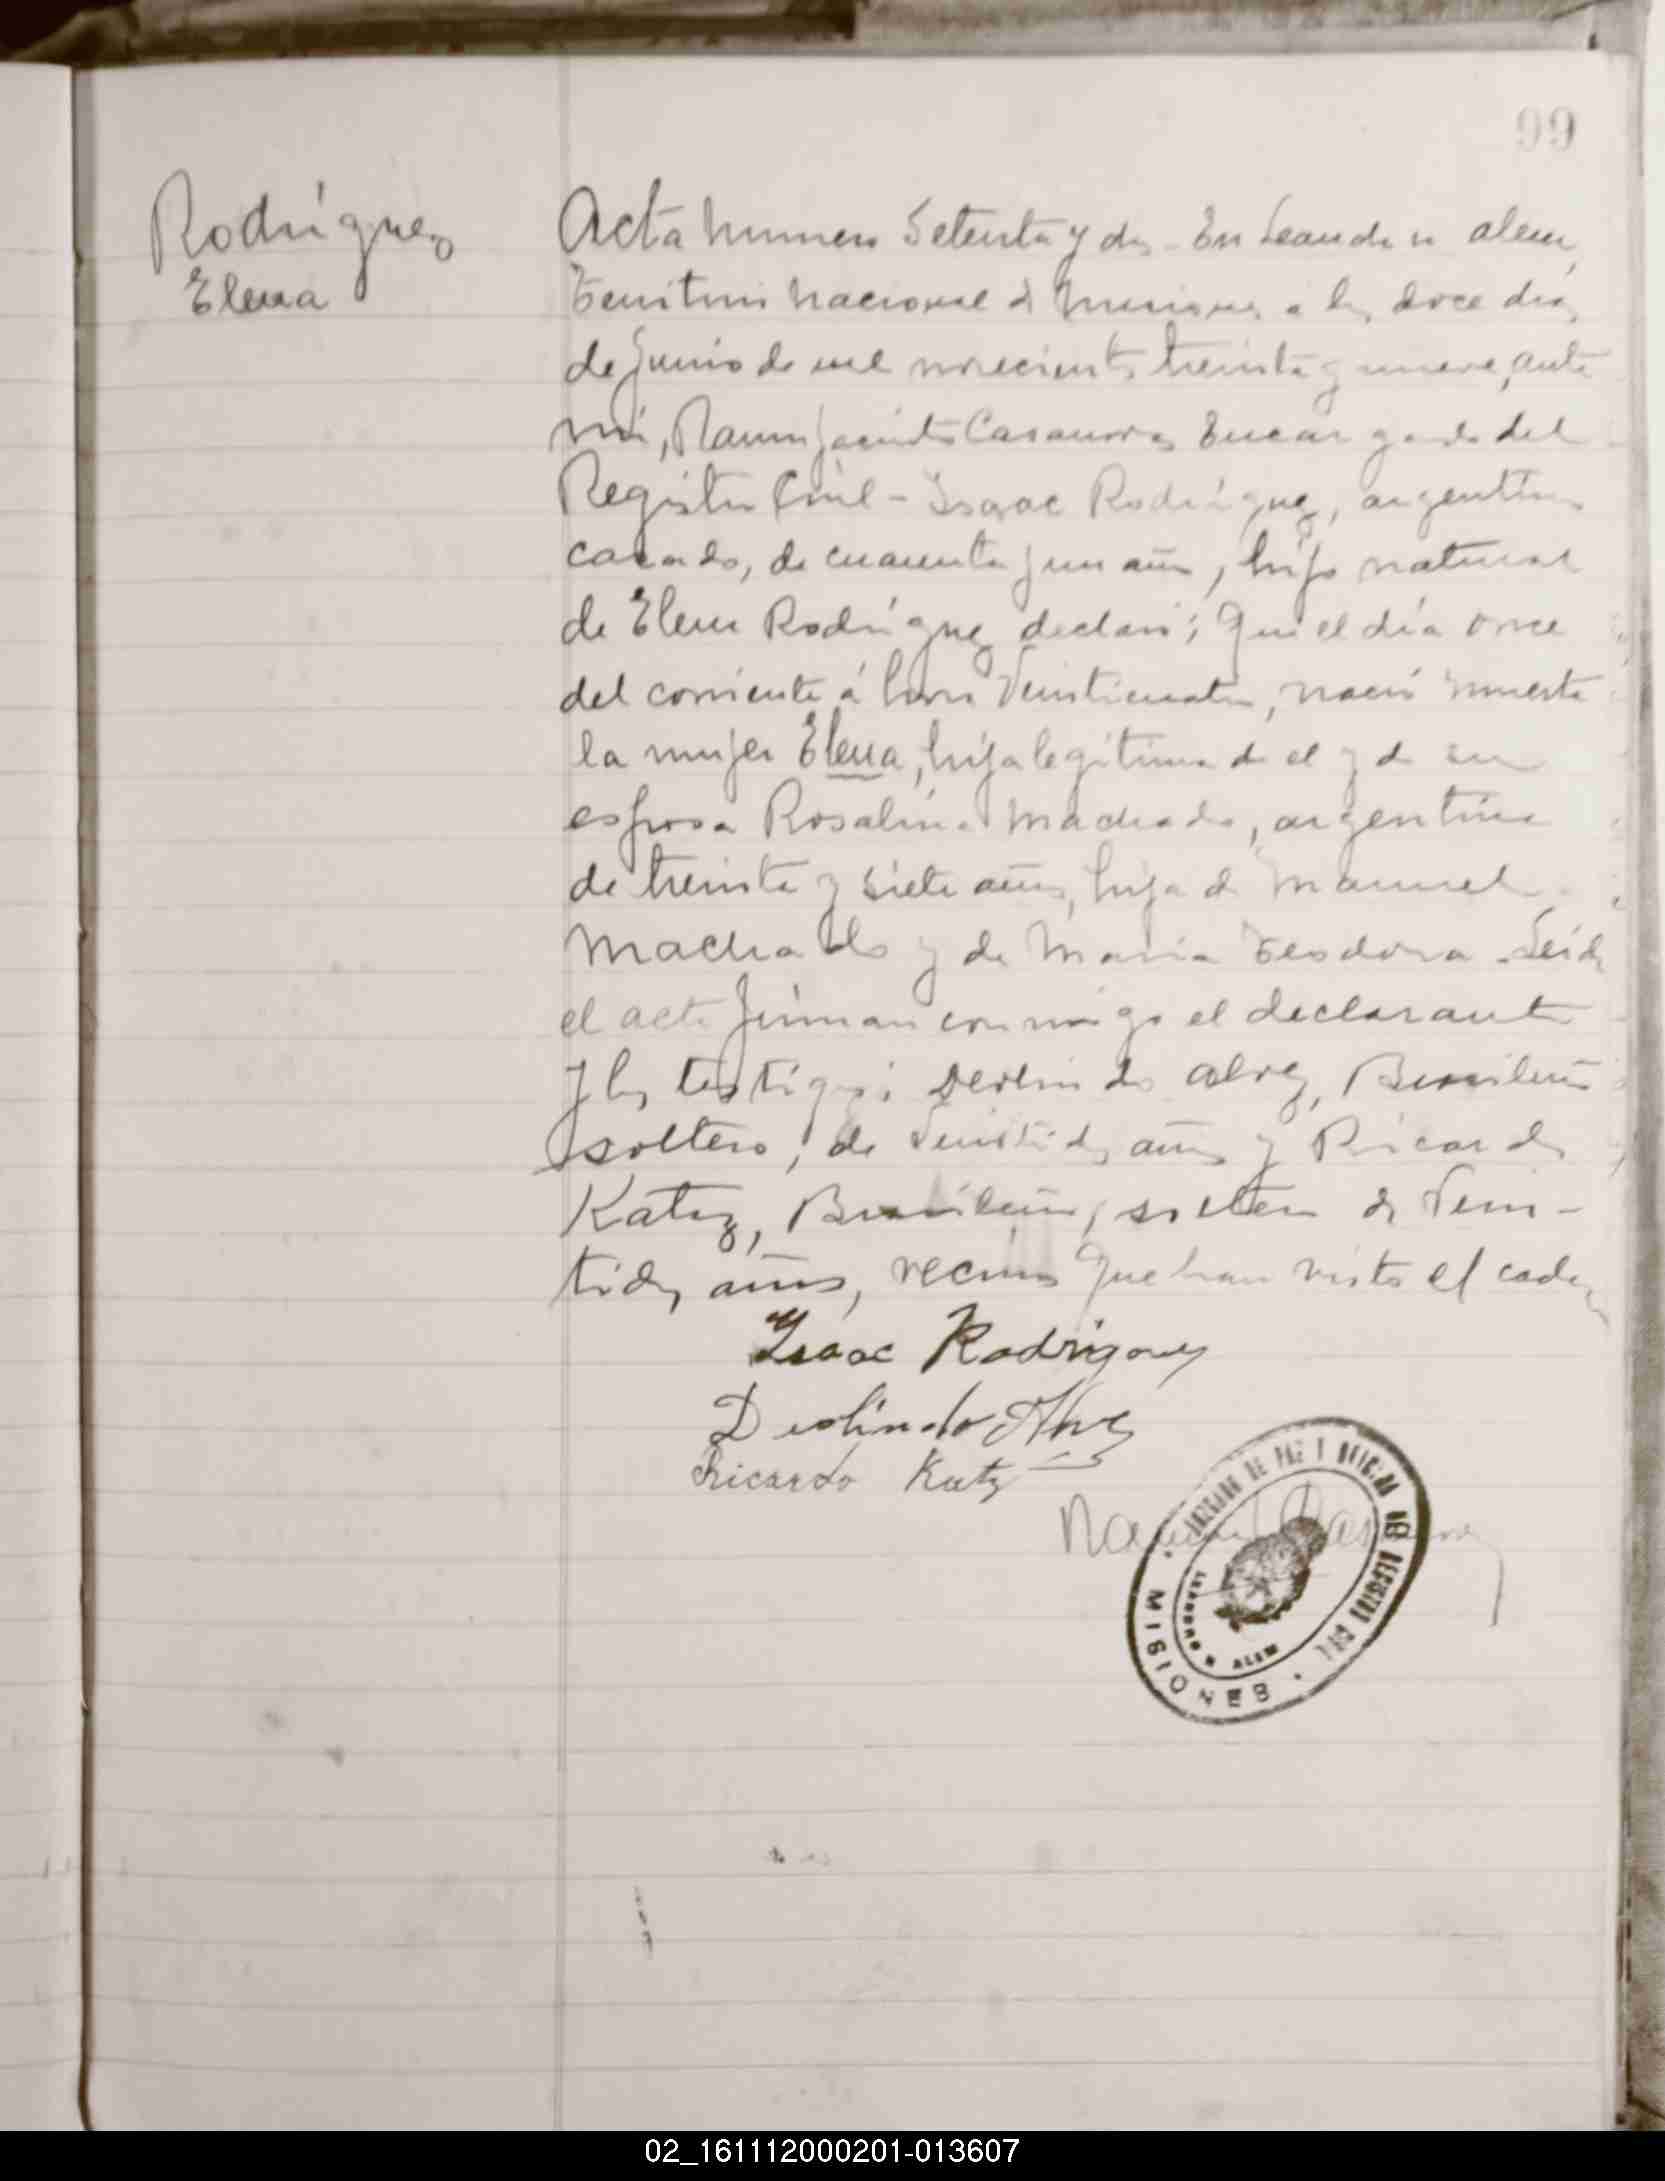 99
Rodríguez
Elena
Acta numero Setenta y dos - En Leandro n alem,
Territorio nacional de Misiones, a los doce días
de Junio de mil novecientos treinta y nueve, ante
mi, Ramon Jacinto Casanova, Encargado del
Registro Civil - Isaac Rodríguez, argentino
casado, de cuarenta y un años, hijo natural
de Elena Rodríguez declaró; Que el día once
del corriente á horas Veinticuatro, nació muerta
la mujer Elena, hija legítima de el y de su
esposa Rosalina Machado, argentina
de treinta y siete años, hija de Manuel
Machado y de Maria Teodora. Leida
el acta firman conmigo el declarante
y los testigos: Deolindo alvez, Brasileño
soltero, de Veintidos años y Ricardo
Katz, Brasileño, soltero de Vein-
tidos años, vecinos Que han visto el cada
Isaac Rodriguez
Deolindo Alvez
Ricardo Katz
JUZGADO DE PAZ Y OFICINA DEL REGISTRO CIVIL
LEANDRO N ALEM
MISIONES
02_161112000201-013607